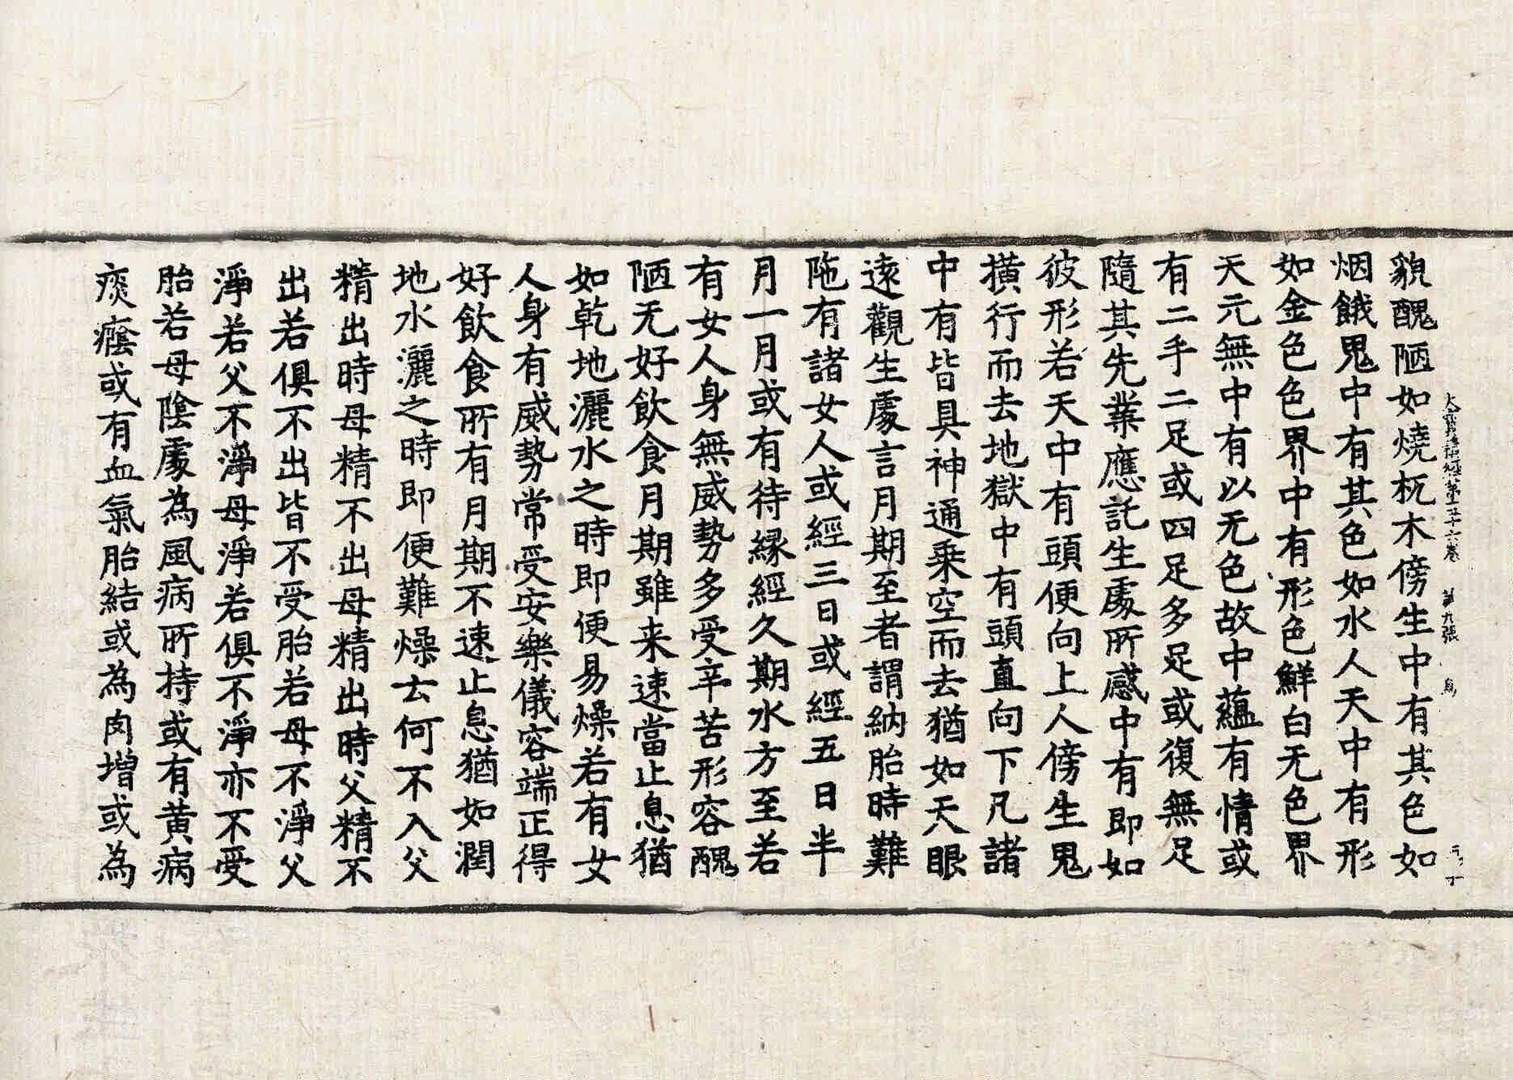 大寶積經第五十六卷 第九張
貌醜陋如燒杌木傍生中有其色如
烟餓鬼中有其色如水人天中有形
如金色色界中有形色鮮白无色界
天元無中有以无色故中蘊有情或
有二手二足或四足多足或復無足
隨其先業應託生處所感中有即如
彼形若天中有頭便向上人傍生鬼
橫行而去地獄中有頭直向下凡諸
中有皆具神通乘空而去猶如天眼
遠觀生處言月期至者謂納胎時難
陁有諸女人或經三日或經五日半
月一月或有待緣經久期水方至若
有女人身無威勢多受辛苦形容醜
陋无好飲食月期雖来速當止息猶
如乾地灑水之時即便易燥若有女
人身有威勢常受安樂儀容端正得
好飲食所有月期不速止息猶如潤
地水灑之時即便難燥云何不入父
精出時母精不出母精出時父精不
出若俱不出皆不受胎若母不淨父
淨若父不淨母淨若俱不淨亦不受
胎若母陰處為風病所持或有黄病
痰癊或有血氣胎結或為肉增或為